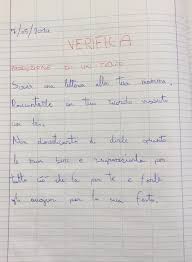 VERIFICA
DESCRIZIONE DI UN
Scrivi una lettera alla tua mamma.
Raccontale un tuo ricordo vissuto
con lei.
Non dimenticarti di dirle quanto
le vuoi bene e ringraziarla per
tutto ciò che fa per te e falle
gli auguri per la sua festa.